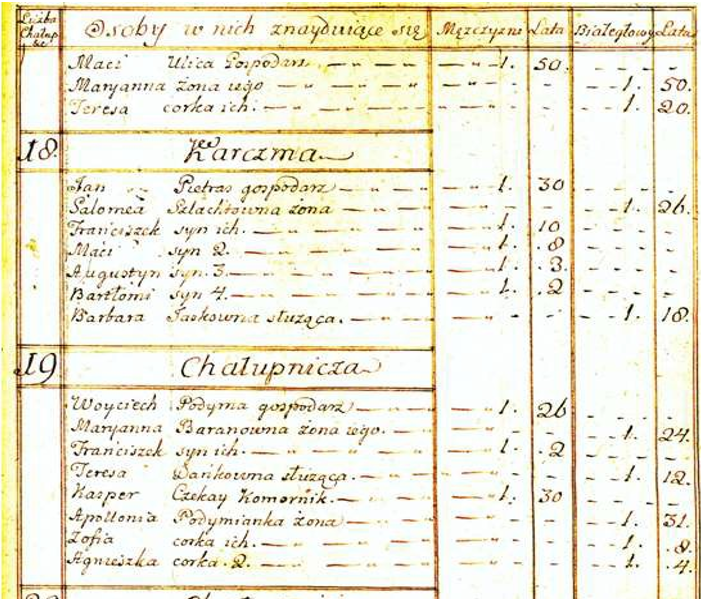 Liczba Chałup &c Osoby w nich znayduiące się Męzczyzni Lata Białegłowy Lata
Maci Ulica Gospodarz 1. 50.
Maryanna żona iego 1. 50.
Teresa corka ich. 1. 20.
18. Karczma
Jan Pietras gospodarz 1. 30
Salomea Szlachtowna żona 1. 26.
Franciszek syn ich. 1. 10
Maci syn 2. 1. 8
Augustyn syn 3. 1. 3.
Bartłomi syn 4. 1. 2
Barbara Jaskowna służąca. 1. 18.
19 Chałupnicza
Woyciech Podyma gospodarz 1. 26
Maryanna Baranowna żona iego. 1. 24.
Franciszek syn ich. 1. 2
Teresa Dańkowna służąca. 1. 12
Kasper Czekay Komornik. 1. 30
Apollonia Podymianka żona 1. 31.
Zofia corka ich. 1. 8.
Agnieszka corka 2. 1. 4.